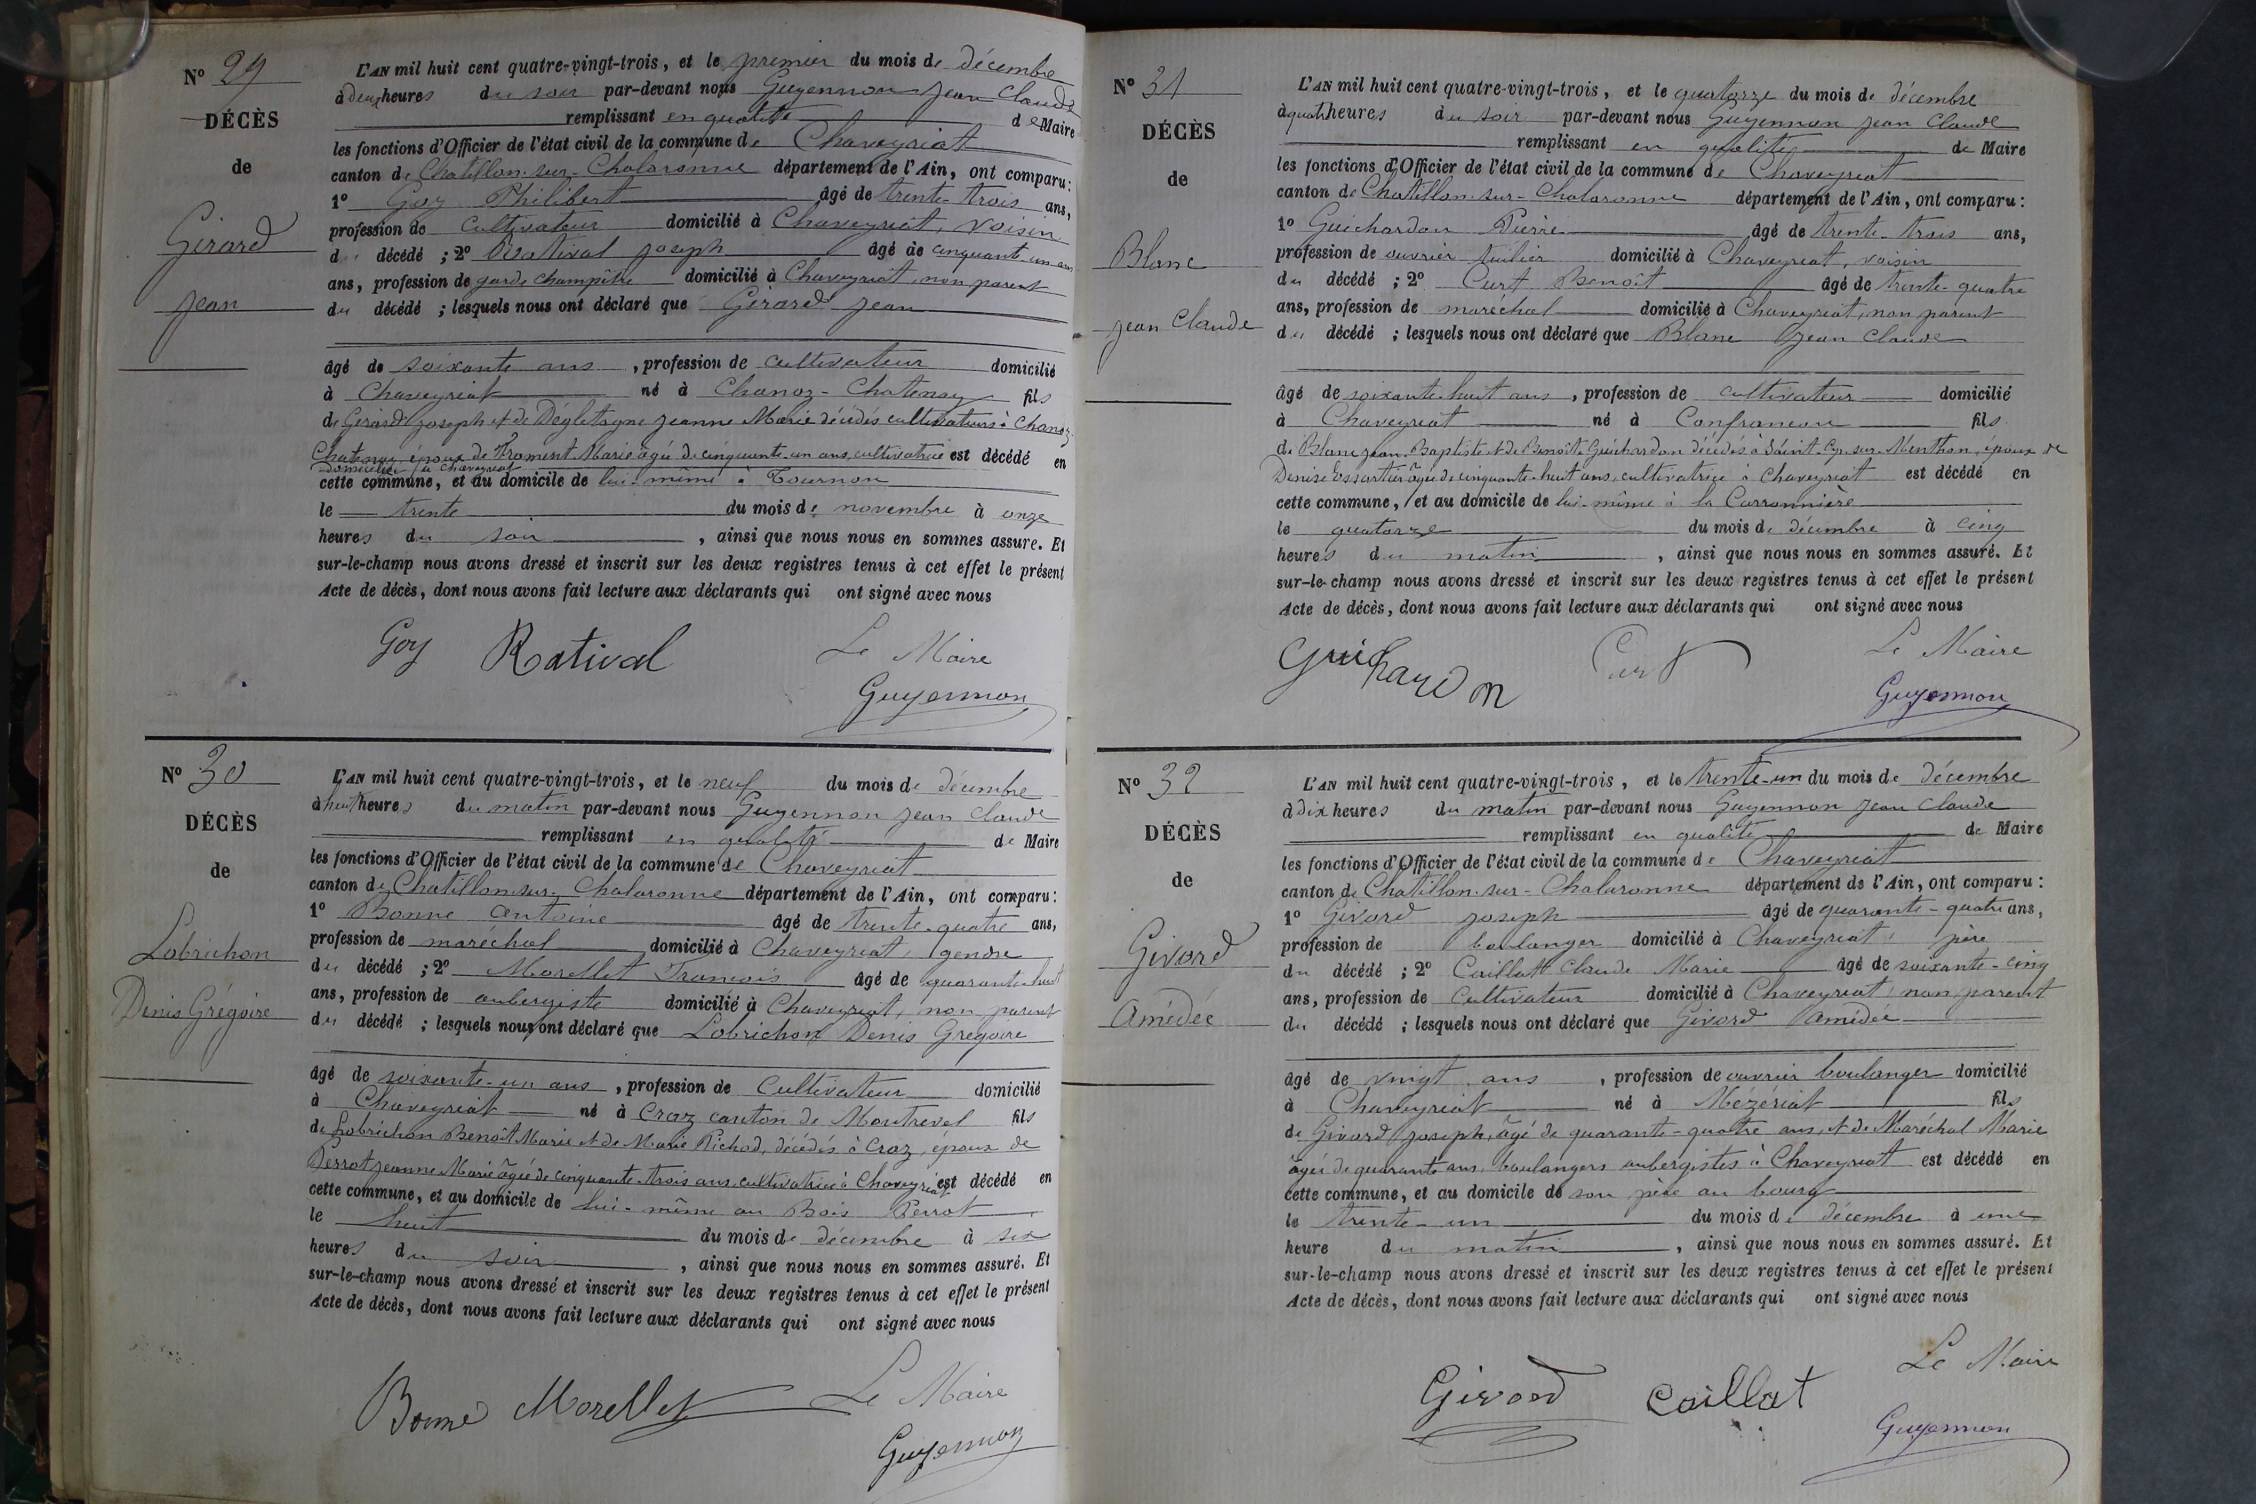 N° 29
DÉCÈS
de
Girard
Jean
L'AN mil huit cent quatre-vingt-trois, et le premier du mois de décembre
à deux heures du soir par-devant nous Guyennon Jean Claude
remplissant en qualité de Maire
les fonctions d'Officier de l'état civil de la commune de Chaveyriat
canton de Chatillon-sur-Chalaronne département de l'Ain, ont comparu :
1° Goy Philibert âgé de trente-trois ans,
profession de cultivateur domicilié à Chaveyriat, voisin
du décédé ; 2° Ratival Joseph âgé de cinquante-un ans
ans, profession de garde champêtre domicilié à Chaveyriat, non parent
du décédé ; lesquels nous ont déclaré que Girard Jean
âgé de soixante ans, profession de cultivateur domicilié
à Chaveyriat né à Chanoz-Chatenay fils
de Girard Joseph et de Dégletagne Jeanne Marie décédés cultivateurs à Chanoz-
Chatenay époux de Froment Marie âgée de cinquante-un ans, cultivatrice est décédé en
domiciliée à Chaveyriat
cette commune, et au domicile de lui-même à Tournon
le trente du mois de novembre à onze
heures du soir, ainsi que nous nous en sommes assuré. Et
sur-le-champ nous avons dressé et inscrit sur les deux registres tenus à cet effet le présent
Acte de décès, dont nous avons fait lecture aux déclarants qui ont signé avec nous
Goy Ratival Le Maire
Guyennon
N° 30
DÉCÈS
de
Lobrichon
Denis Grégoire
L'AN mil huit cent quatre-vingt-trois, et le neuf du mois de décembre
à huit heures du matin par-devant nous Guyennon Jean Claude
remplissant en qualité de Maire
les fonctions d'Officier de l'état civil de la commune de Chaveyriat
canton de Chatillon-sur-Chalaronne département de l'Ain, ont comparu :
1° Bonne Antoine âgé de trente-quatre ans,
profession de maréchal domicilié à Chaveyriat, gendre
du décédé ; 2° Morellet François âgé de quarante-huit
ans, profession de aubergiste domicilié à Chaveyriat, non parent
du décédé ; lesquels nous ont déclaré que Lobrichon Denis Grégoire
âgé de soixante-un ans, profession de Cultivateur domicilié
à Chaveyriat né à Craz canton de Montrevel fils
de Lobrichon Benoît Marie et de Marie Richod, décédés à Craz, époux de
Perrot Jeanne Marie âgée de cinquante-trois ans, cultivatrice à Chaveyriat est décédé en
cette commune, et au domicile de lui-même au Bois Perrot
le huit du mois de décembre à six
heures du soir, ainsi que nous nous en sommes assuré. Et
sur-le-champ nous avons dressé et inscrit sur les deux registres tenus à cet effet le présent
Acte de décès, dont nous avons fait lecture aux déclarants qui ont signé avec nous
Bonne Morellet Le Maire
Guyennon
N° 31
DÉCÈS
de
Blanc
Jean Claude
L'AN mil huit cent quatre-vingt-trois, et le quatorze du mois de décembre
à quatre heures du soir par-devant nous Guyennon Jean Claude
remplissant en qualité de Maire
les fonctions d'Officier de l'état civil de la commune de Chaveyriat
canton de Chatillon-sur-Chalaronne département de l'Ain, ont comparu :
1° Guichardon Pierre âgé de trente-trois ans,
profession de ouvrier tuilier domicilié à Chaveyriat, voisin
du décédé ; 2° Curt Benoît âgé de trente-quatre
ans, profession de maréchal domicilié à Chaveyriat, non parent
du décédé ; lesquels nous ont déclaré que Blanc Jean Claude
âgé de soixante-huit ans, profession de cultivateur domicilié
à Chaveyriat né à Confrançon fils
de Blanc Jean-Baptiste et de Benoîte Guichardon décédés à Saint-Cyr-sur-Menthon, époux de
Denise Essartier âgée de cinquante-huit ans, cultivatrice à Chaveyriat est décédé en
cette commune, et au domicile de lui-même à la Carronnière
le quatorze du mois de décembre à cinq
heures du matin, ainsi que nous nous en sommes assuré. Et
sur-le-champ nous avons dressé et inscrit sur les deux registres tenus à cet effet le présent
Acte de décès, dont nous avons fait lecture aux déclarants qui ont signé avec nous
Guichardon Curt Le Maire
Guyennon
N° 32
DÉCÈS
de
Givord
Amédée
L'AN mil huit cent quatre-vingt-trois, et le trente-un du mois de décembre
à dix heures du matin par-devant nous Guyennon Jean Claude
remplissant en qualité de Maire
les fonctions d'Officier de l'état civil de la commune de Chaveyriat
canton de Chatillon-sur-Chalaronne département de l'Ain, ont comparu :
1° Givord Joseph âgé de quarante-quatre ans,
profession de boulanger domicilié à Chaveyriat, père
du décédé ; 2° Caillat Claude Marie âgé de soixante-cinq
ans, profession de Cultivateur domicilié à Chaveyriat, non parent
du décédé ; lesquels nous ont déclaré que Givord Amédée
âgé de vingt ans, profession de ouvrier boulanger domicilié
à Chaveyriat né à Mézériat fils
de Givord Joseph, âgé de quarante-quatre ans, et de Maréchal Marie
âgée de quarante ans, boulangers aubergistes à Chaveyriat est décédé en
cette commune, et au domicile de son père au bourg
le trente-un du mois de décembre à une
heure du matin, ainsi que nous nous en sommes assuré. Et
sur-le-champ nous avons dressé et inscrit sur les deux registres tenus à cet effet le présent
Acte de décès, dont nous avons fait lecture aux déclarants qui ont signé avec nous
Givord Caillat Le Maire
Guyennon